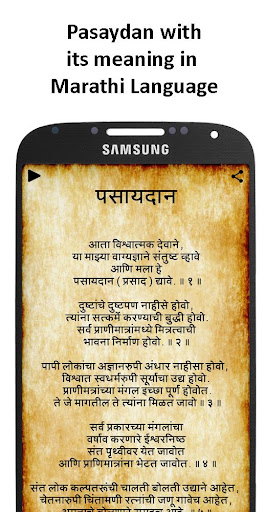 Pasaydan with
its meaning in
Marathi Language
SAMSUNG
पसायदान
आता विश्वात्मक देवाने ,
या माझ्या वाग्यज्ञाने संतुष्ट व्हावे
आणि मला हे
पसायदान ( प्रसाद ) द्यावे. ॥ १ ॥
दुष्टांचे दुष्टपण नाहीसे होवो,
त्यांना सत्कर्मे करण्याची बुद्धी होवो.
सर्व प्राणीमात्रांमध्ये मित्रत्वाची
भावना निर्माण होवो. ॥ २ ॥
पापी लोकाचा अज्ञानरुपी अंधार नाहीसा होवो,
विश्वात स्वधर्मरुपी सूर्याचा उदय होवो.
प्राणीमात्रांच्या मंगल इच्छा पूर्ण होवोत
ते जे मागतील ते त्यांना मिळत जावो ॥ ३ ॥
सर्व प्रकारच्या मंगलांचा
वर्षाव करणारे ईश्वरनिष्ठ
संत पृथ्वीवर येत जावोत
आणि प्राणिमात्रांना भेटत जावोत. ॥ ४ ॥
संत लोक कल्पतरूंची चालती बोलती उद्याने आहेत,
चेतनारुपी चिंतामणी रत्नांची जणू गावेच आहेत,